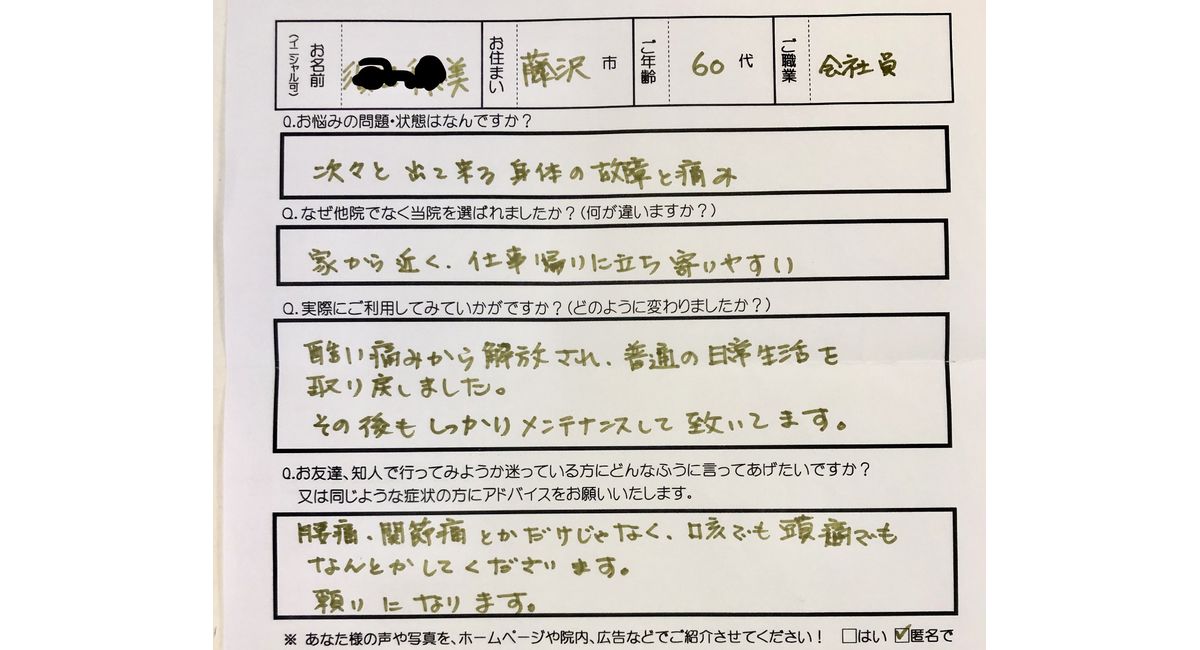 お名前 (イニシャル可) 美 お住まい 藤沢 市 ご年齢 60 代 ご職業 会社員
Q.お悩みの問題・状態はなんですか？
次々と出て来る身体の故障と痛み
Q.なぜ他院でなく当院を選ばれましたか？(何が違いますか？)
家から近く、仕事帰りに立ち寄りやすい
Q.実際にご利用してみていかがですか？(どのように変わりましたか？)
酷い痛みから解放され、普通の日常生活を
取り戻しました。
その後もしっかりメンテナンスして致いてます。
Q.お友達、知人で行ってみようか迷っている方にどんなふうに言ってあげたいですか？
又は同じような症状の方にアドバイスをお願いいたします。
腰痛、関節痛とかだけじゃなく、咳でも頭痛でも
なんとかしてくださいます。
頼りになります。
※ あなた様の声や写真を、ホームページや院内、広告などでご紹介させてください！ □はい ☑匿名で